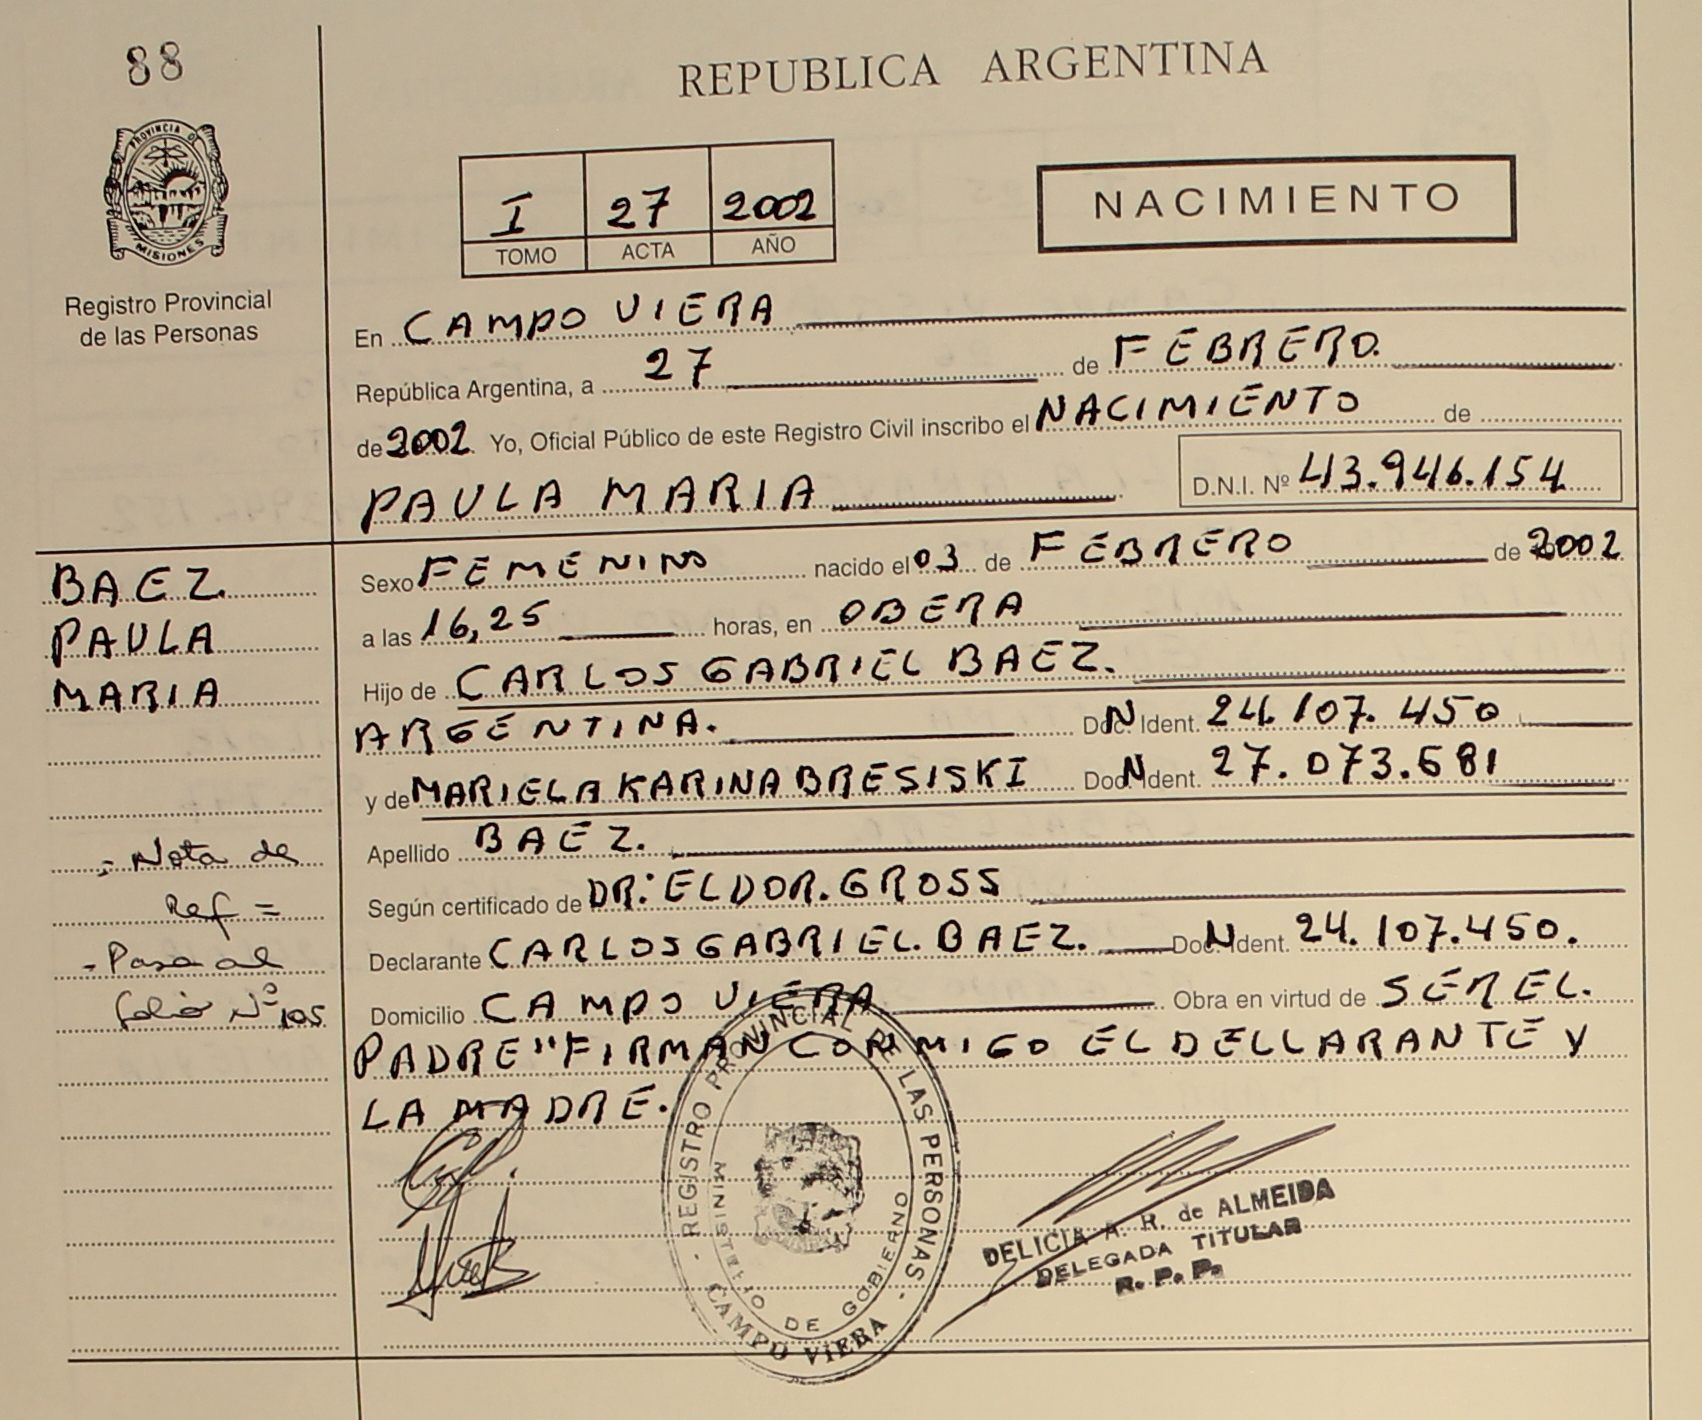 88
REPUBLICA ARGENTINA
PROVINCIA DE
MISIONES
Registro Provincial
de las Personas
I 27 2002
TOMO ACTA AÑO
NACIMIENTO
En CAMPO VIERA
República Argentina, a 27 de FEBRERO.
de 2002 Yo, Oficial Público de este Registro Civil inscribo el NACIMIENTO de
PAULA MARIA D.N.I. Nº 43.946.154
BAEZ.
PAULA
MARIA
Sexo FEMENINO nacido el 03 de FEBRERO de 2002
a las 16,25 horas, en OBERA
Hijo de CARLOS GABRIEL BAEZ.
ARGENTINA. Doc. N Ident. 24.107.450
y de MARIELA KARINA BRESISKI Doc. N Ident. 27.073.681
Apellido BAEZ.
Según certificado de DR: ELDOR. GROSS
Declarante CARLOS GABRIEL. BAEZ. Doc. N Ident. 24.107.450.
Domicilio CAMPO VIERA Obra en virtud de SER EL.
PADRE "FIRMAN CONMIGO EL DELLARANTE Y
LA MADRE.
- Nota de
Ref =
- Pasa al
folio Nº 105
REGISTRO PROVINCIAL DE LAS PERSONAS
MINISTERIO DE GOBIERNO
CAMPO VIERA
DELICIA A. R. de ALMEIDA
DELEGADA TITULAR
R. P. P.